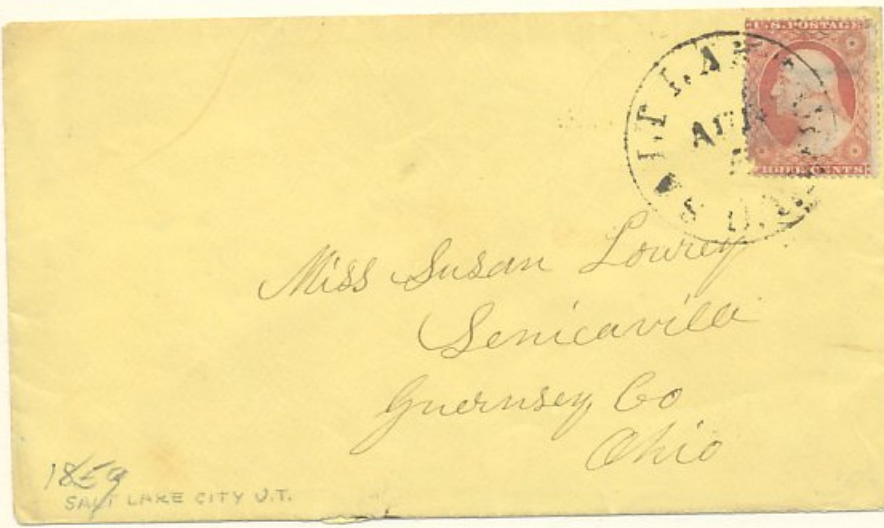 U.S. POSTAGE
THREE CENTS
SALT LAKE
U.T.
Miss Susan Lowrey
Senicaville
Guernsey Co
Ohio
1859
SALT LAKE CITY U.T.